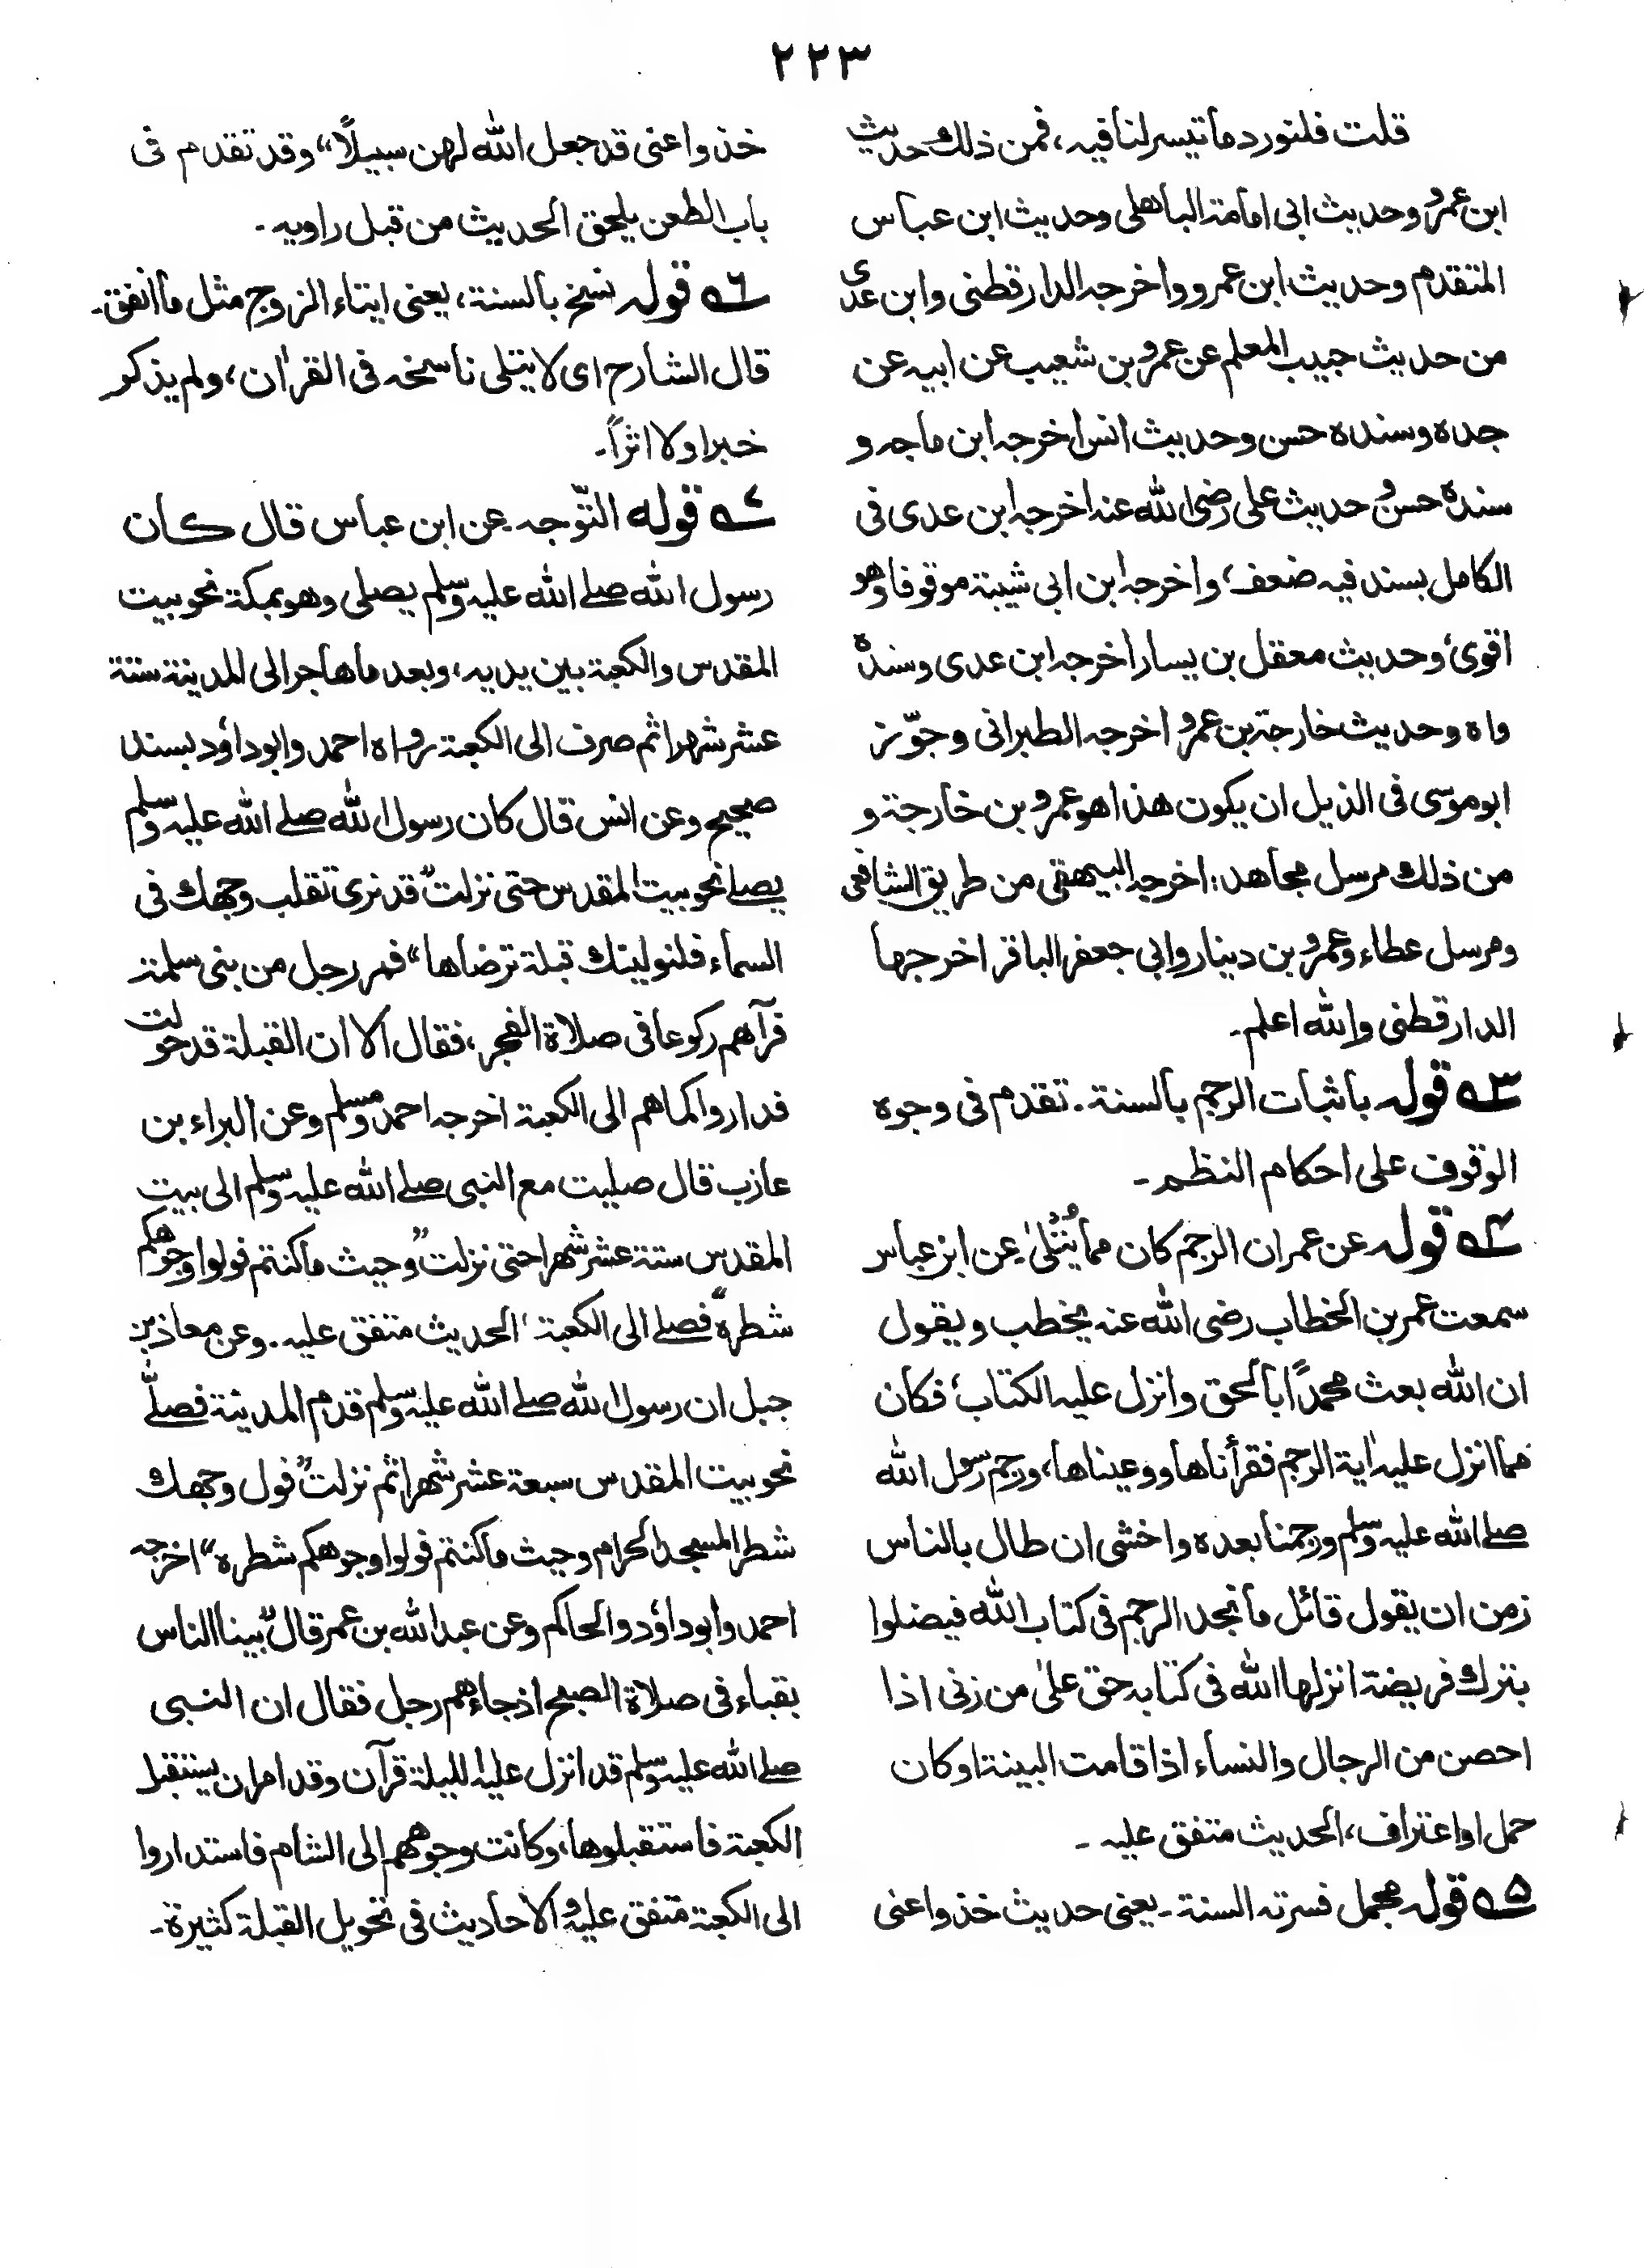 ٢٢٣
قلت فلنورد ما تيسر لنا فيه، فمن ذلك حديث
ابن عمرو وحديث ابى امامة الباهلى وحديث ابن عباس
المتقدم وحديث ابن عمرو واخرجه الدارقطنى وابن عدى
من حديث حبيب المعلم عن عمرو بن شعيب عن ابيه عن
جده وسنده حسن وحديث انس اخرجه ابن ماجه و
سنده حسن و حديث على رضى الله عنه اخرجه ابن عدى فى
الكامل بسند فيه ضعف، واخرجه ابن ابى شيبة موقوفا وهو
اقوى، وحديث معقل بن يسار اخرجه ابن عدى وسنده
واه وحديث خارجة بن عمرو اخرجه الطبرانى وجوّز
ابو موسى فى الذيل ان يكون هذا هو عمرو بن خارجة و
من ذلك مرسل مجاهد: اخرجه البيهقى من طريق الشافعى
ومرسل عطاء وعمرو بن دينار وابى جعفر الباقر اخرجها
الدارقطنى والله اعلم۔
٣ قوله باثبات الرجم بالسنة. تقدم فى وجوه
الوقوف على احكام النظم۔
٤ قوله عن عمر ان الرجم كان مما يُتْلىٰ. عن ابن عباس
سمعت عمر بن الخطاب رضى الله عنه يخطب ويقول
ان الله بعث محمدًا بالحق وانزل عليه الكتاب، فكان
مما انزل عليه اٰية الرجم فقرأناها ووعيناها، ورجم رسول الله
صلے الله عليه وسلم ورجمنا بعده واخشى ان طال بالناس
زمن ان يقول قائل ما نجد الرجم فى كتاب الله فيضلوا
بترك فريضة انزلها الله فى كتابه حق علىٰ من زنى اذا
احصن من الرجال والنساء اذا قامت البينة او كان
حمل او اعتراف، الحديث متفق عليه ۔
۵ قوله مجمل فسرته السنة۔ يعنى حديث خذوا عنى
خذوا عنى قد جعل الله لهن سبيلًا“ وقد تقدم فى
باب الطعن يلحق الحديث من قبل راويه ۔
٦ قوله نسخ بالسنة، يعنى ايتاء الزوج مثل ما انفق۔
قال الشارح اى لا يتلى ناسخه فى القراٰن، ولم يذكر
خبرا ولا اثرًا۔
٧ قوله التّوجه. عن ابن عباس قال كان
رسول الله صلے الله عليه وسلم يصلى وهو بمكة نحو بيت
المقدس والكعبة بين يديه، وبعد ما هاجر الى المدينة ستة
عشر شهرا ثم صرف الى الكعبة رواه احمد وابو داؤد بسند
صحيح وعن انس قال كان رسول الله صلے الله عليه وسلم
يصلے نحو بيت المقدس حتى نزلت ”قد نرى تقلب وجهك فى
السماء فلنولينك قبلة ترضاها“ فمر رجل من بنى سلمة
فرآهم ركوعا فى صلاة الفجر، فقال الا ان القبلة قد حولت
فداروا كما هم الى الكعبة اخرجه احمد ومسلم وعن البراء بن
عازب قال صليت مع النبى صلے الله عليه وسلم الى بيت
المقدس ستة عشر شهرا حتى نزلت ”وحيث ما كنتم فولوا وجوهكم
شطره“ فصلے الى الكعبة، الحديث متفق عليه. وعن معاذ بن
جبل ان رسول الله صلے الله عليه وسلم قدم المدينة فصلّے
نحو بيت المقدس سبعة عشر شهرا ثم نزلت ”فول وجهك
شطر المسجد الحرام وحيث ما كنتم فولوا وجوهكم شطره“ اخرجه
احمد وابو داؤد والحاكم وعن عبد الله بن عمر قال ”بينا الناس
بقباء فى صلاة الصبح اذ جاءهم رجل فقال ان النبى
صلے الله عليه وسلم قد انزل عليه الليلة قرآن وقد امر ان يستقبل
الكعبة فاستقبلوها، وكانت وجوههم الى الشام فاستداروا
الى الكعبة متفق عليه و الاحاديث فى تحويل القبلة كثيرة۔